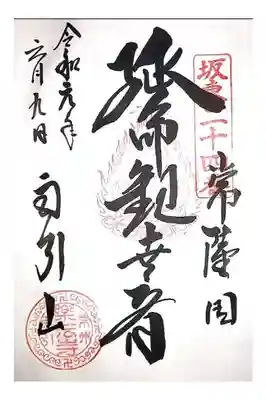 坂東二十四番
常陸国
延命観世音
令和元年
六月九日
雨引山